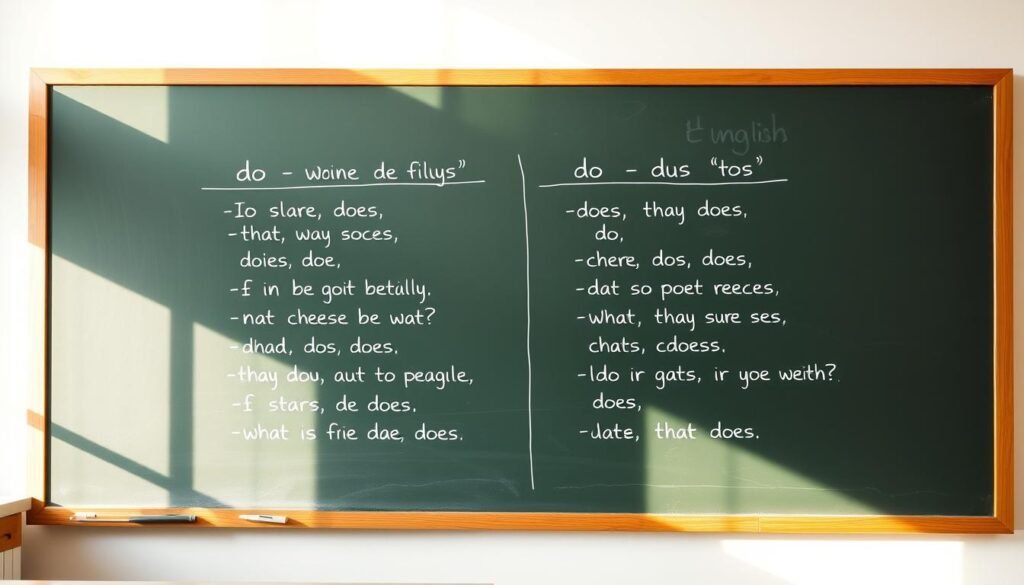 English
do - woine de filiys”
-Io slare, does,
-that, way soces,
doies, doe,
-f in be goit betully.
-nat cheese be wat?
-dhad, dos, does.
-thay dou, aut to peagile,
-f stars, de does.
-what is frie dae, does.
do - dus “tos”
-does, thay does,
do,
-chere, dos, does,
-dat so poet reeces,
-what, thay sure ses,
chats, cdoess.
-ldo ir gats, ir yoe weith?
does,
-uate, that does.